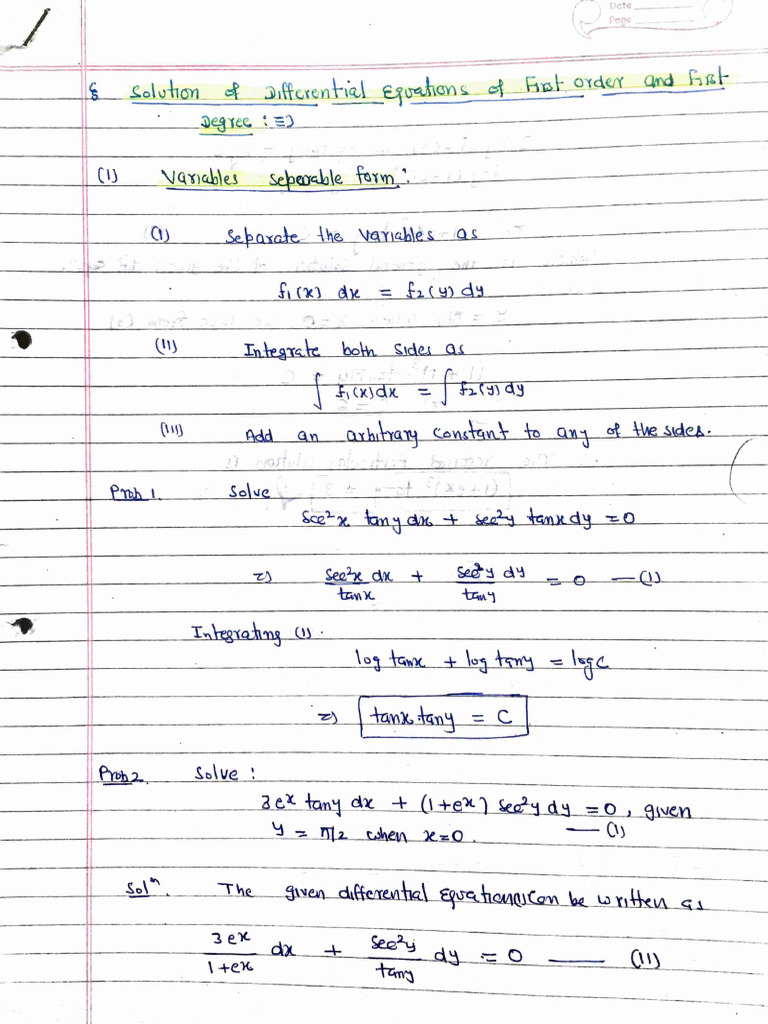 Date
Page
§ Solution of Differential Equations of First order and First
Degree : ≡)
(1) Variables seperable form :
(1) Separate the variables as
f₁(x) dx = f₂(y) dy
(11) Integrate both sides as
∫ f₁(x) dx = ∫ f₂(y) dy
(111) Add an arbitrary constant to any of the sides.
Prob 1. Solve
sec²x tany dx + sec²y tanx dy = 0
=) sec²x/tanx dx + sec²y/tany dy = 0 — (1)
Integrating (1).
log tanx + log tany = log c
=) tanx tany = C
Prob 2. Solve :
3e^x tany dx + (1+e^x) sec²y dy = 0, given
y = π/2 when x=0. — (1)
Solⁿ. The given differential Equation(1) can be written as
3e^x/1+e^x dx + sec²y/tany dy = 0 — (11)